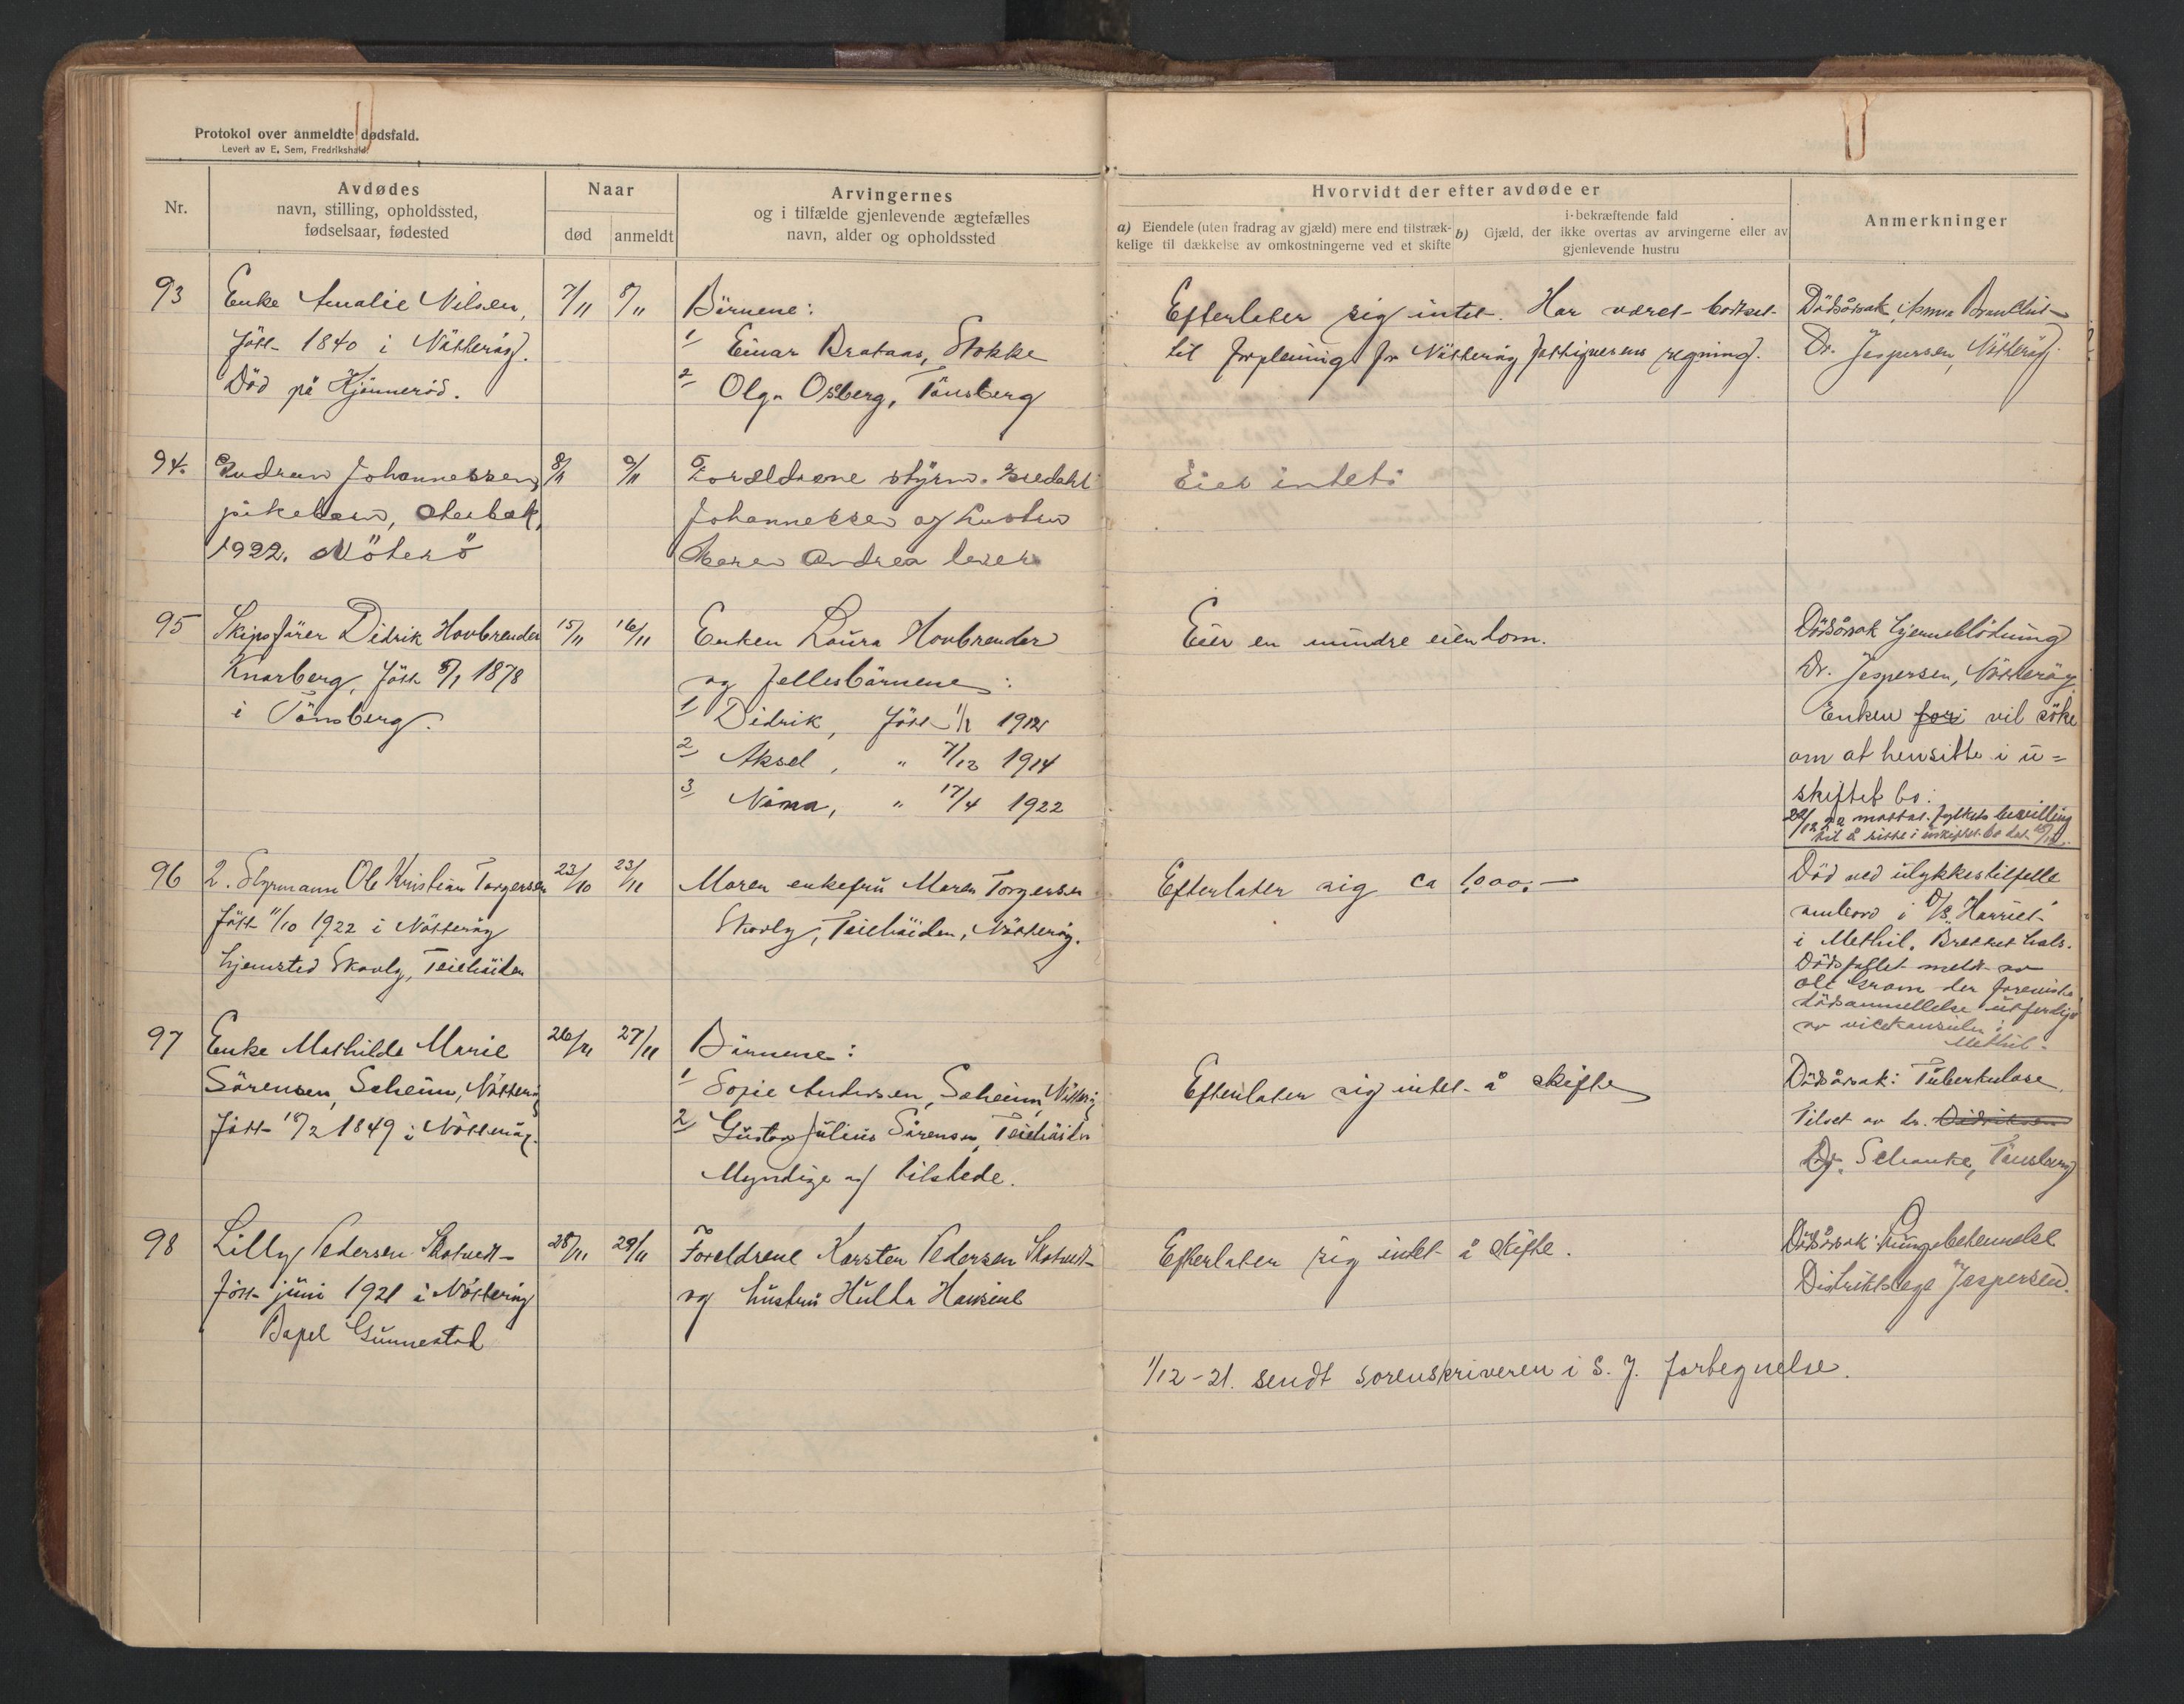 Protokol over anmeldte dødsfald.
Levert av E. Sem, Fredrikshald.
Nr.
Avdødes
navn, stilling, opholdssted,
fødselsaar, fødested
Naar
død
anmeldt
Arvingernes
og i tilfælde gjenlevende ægtefælles
navn, alder og opholdssted
Hvorvidt der efter avdøde er
a) Eiendele (uten fradrag av gjæld) mere end tilstræk-
kelige til dækkelse av omkostningerne ved et skifte
i bekræftende fald
b) Gjæld, der ikke overtas av arvingerne eller av
gjenlevende hustru
Anmerkninger
93
Enke Amalie Nilsen,
fött 1840 i Nötteröy.
Död på Kjönneröd.
7/11
8/11
Börnene:
1 Einar Brataas, Stokke
2 Olga Osberg, Tönsberg
Efterlater sig intet. Har været bortsat
til forpleining for Nötteröy fattigvesens regning.
Dödsårsak,
Dr. Jespersen, Nötteröy.
94.
Gudrun Johannessen,
pikebarn,
1922. Nöterö
8/11
9/11
Forældrene styrm.
Johannessen og hustru
Karen Andrea lever
Eiet intet.
95
Skipsförer Didrik Hovbrender
Knarberg, fött 8/1 1878
i Tönsberg.
15/11
16/11
Enken Laura Hovbrender
og fellesbörnene:
1 Didrik, fött 1912
2 Aksel, " 7/12 1914
3 " 17/4 1922
Eier en mindre eiendom.
Dödsårsak hjerneblödning
Dr. Jespersen, Nötteröy
Enken vil söke
om at hensitte i u=
skiftet bo.
22/12 22 mottat fylkets bevilling
til å sitte i uskiftet bo
96
2. Styrmann Ole Kristian Torgersen
fött 11/10 1922 i Nötteröy
hjemsted Skovly, Teiehöiden
22/10
23/11
Moren enkefru Maren Torgersen
Skovly, Teiehöiden, Nötteröy.
Efterlater sig ca 1,000.—
Död ved ulykkestilfelle
ombord i D/S "Harriet"
i Methil. Brekket hals.
Dödsfallet meldt av
dödsanmeldelse
av vicekonsulen i
Methil.
97
Enke Mathilde Marie
Sörensen, Solheim, Nötteröy
fött 18/2 1849 i Nötteröy.
26/11
27/11
Börnene:
1 Sofie Andersen, Solheim, Nötteröy
2 Gustav Julius Sörensen, Teiehöiden
Myndige og tilstede.
Efterlater sig intet å skifte
Dödsårsak: Tuberkulose.
Tilset av dr. Didriksen
Dr. Schanke, Tönsberg
98
Lilly Pedersen Skotvedt
fött juni 1921 i Nötteröy
Bapel Gunnestad
28/11
29/11
Foreldrene Karsten Pedersen Skotvedt
og hustru Hulda Hansine
Efterlater sig intet å skifte.
Dödsårsak: Lungebetennelse
Distriktslæge Jespersen.
1/12-21. sendt sorenskriveren i S. J. fortegnelse.